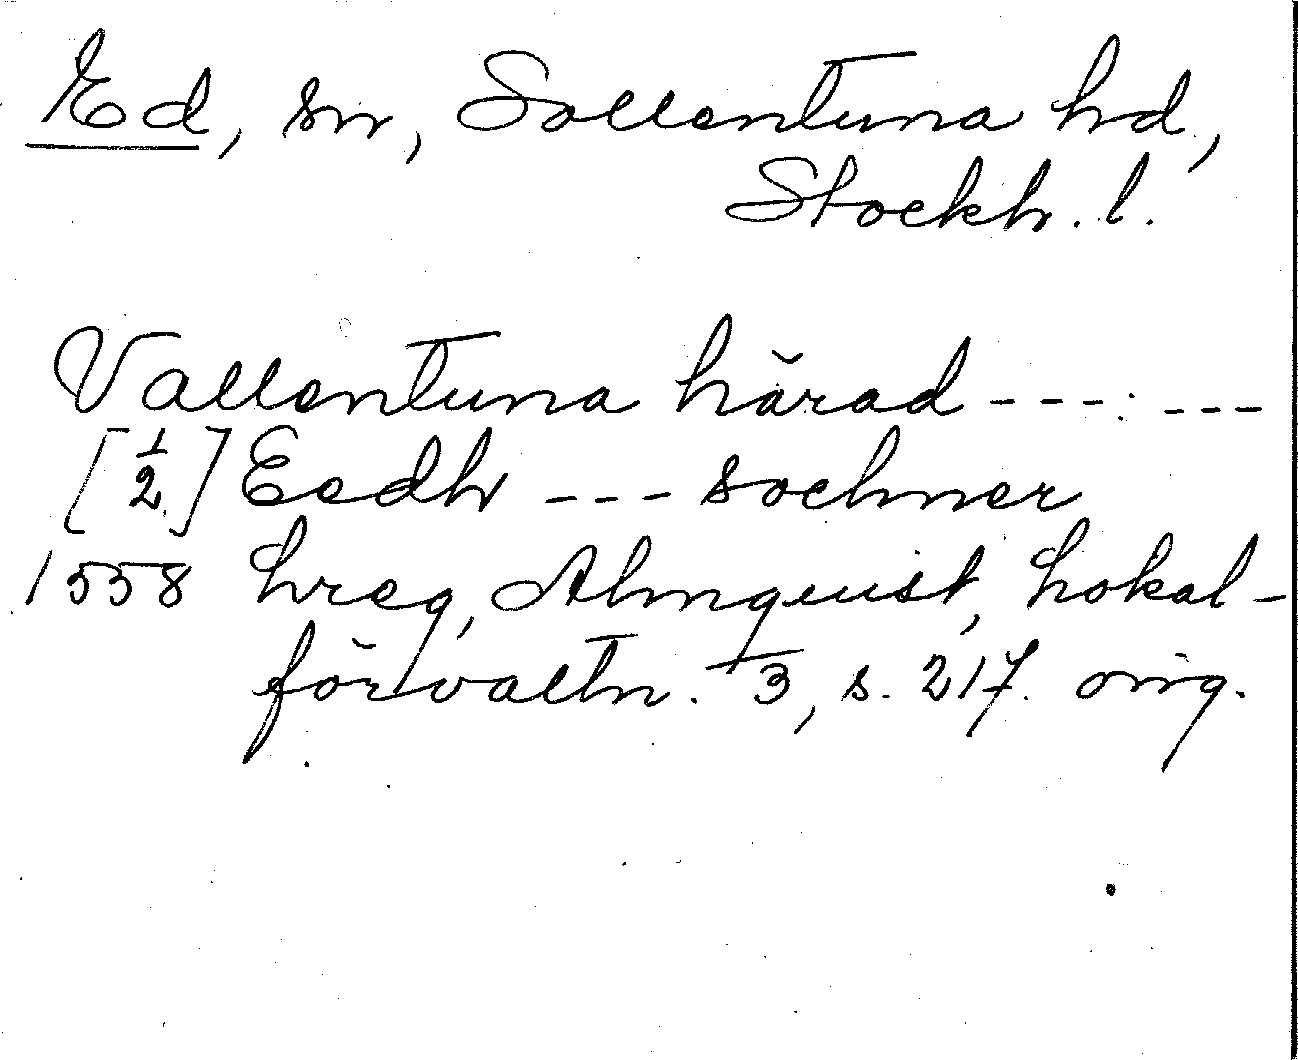 Ed, sn, Sollentuna hd,
Stockh. l.
Vallentuna härad --- ---
[½] Eedh --- sochner
1558 hreg, Almquist, Lokal-
förvaltn. 3, s. 217. orig.